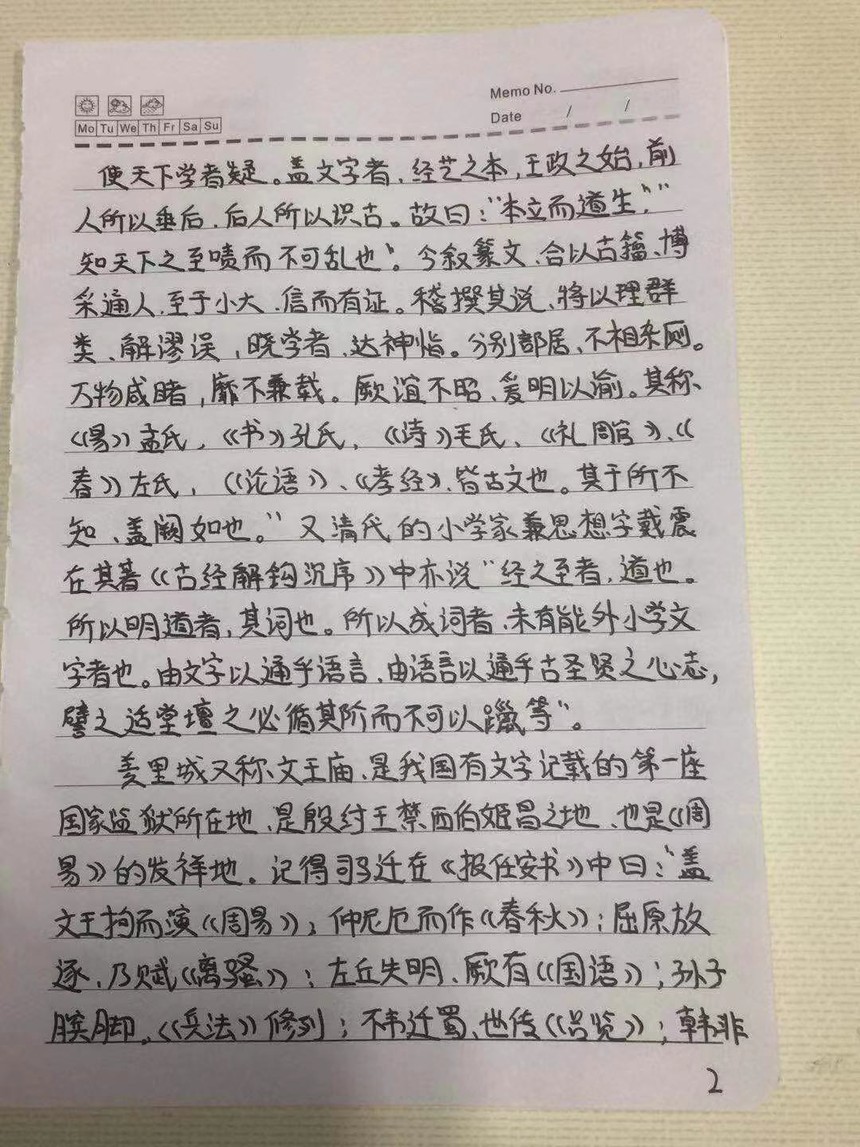 Memo No.
Mo Tu We Th Fr Sa Su
Date / /
使天下学者疑。盖文字者、经艺之本,王政之始,前
人所以垂后、后人所以识古。故曰:“本立而道生”,“
知天下之至啧而不可乱也”。今叙篆文、合以古籀、博
采通人、至于小大、信而有证。稽撰其说、将以理群
类、解谬误,晓学者、达神恉。分别部居、不相杂厕。
万物咸睹,靡不兼载。厥谊不昭、爰明以谕。其称、
《易》孟氏,《书》孔氏,《诗》毛氏、《礼周官》、《
春》左氏,《论语》、《孝经》、皆古文也。其于所不
知、盖阙如也。”又清代的小学家兼思想字戴震
在其著《古经解钩沉序》中亦说“经之至者,道也。
所以明道者,其词也。所以成词者、未有能外小学文
字者也。由文字以通乎语言、由语言以通乎古圣贤之心志,
譬之适堂壇之必循其阶而不可以躐等”。
羑里城又称文王庙、是我国有文字记载的第一座
国家监狱所在地、是殷纣王禁西伯姬昌之地、也是《周
易》的发祥地。记得司马迁在《报任安书》中曰:“盖
文王拘而演《周易》;仲尼厄而作《春秋》;屈原放
逐、乃赋《离骚》;左丘失明、厥有《国语》;孙子
膑脚、《兵法》修列;不韦迁蜀、世传《吕览》;韩非
2